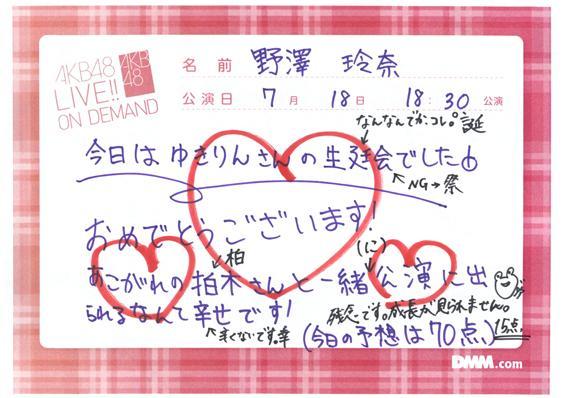 AKB48
LIVE!!
ON DEMAND
AKB
48
名前 野澤 玲奈
公演日 7月 18日 18:30 公演
なんなんでかコレ。誕
今日は ゆきりんさんの生廷会でした
↖NG→祭
おめでとうございます!
柏
(に)
あこがれの 柏木さんと一緒公演に出
られるなんて幸せです!
残念です。成長が見られません。
↖すくないです。幸
(今日の予想は70点)
15点
DMM.com